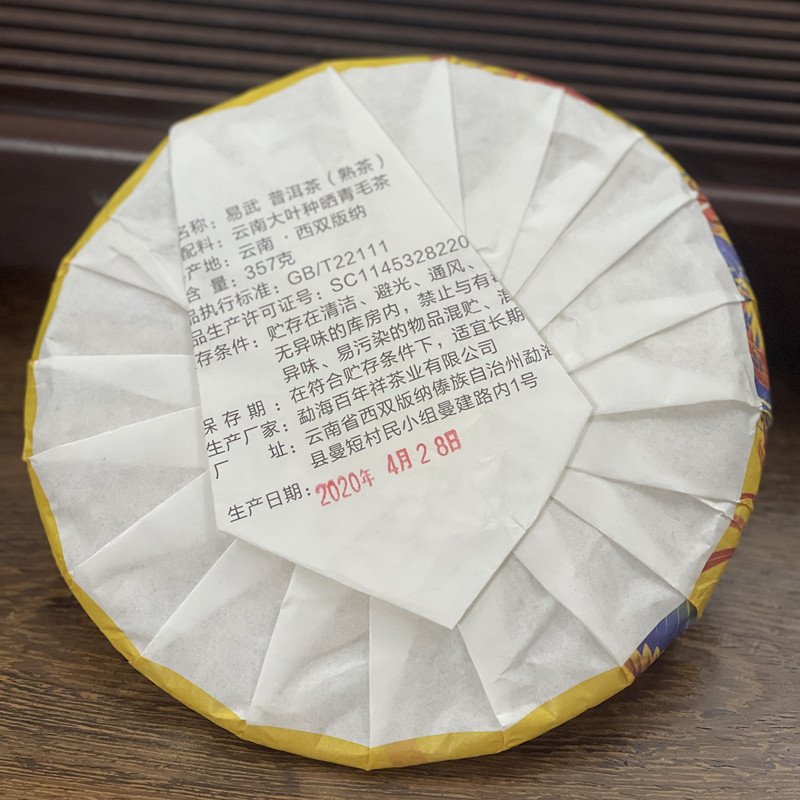 名称：易武 普洱茶（熟茶）
配料：云南大叶种晒青毛茶
产地：云南．西双版纳
含 量：357克
品执行标准：GB/T22111
品生产许可证号：SC1145328220
存条件：贮存在清洁、避光、通风、
无异味的库房内，禁止与有毒
异味、易污染的物品混贮、混
保 存 期：在符合贮存条件下，适宜长期
生产厂家：勐海百年祥茶业有限公司
厂 址：云南省西双版纳傣族自治州勐海
县曼短村民小组曼建路内1号
生产日期：2020年 4月28日